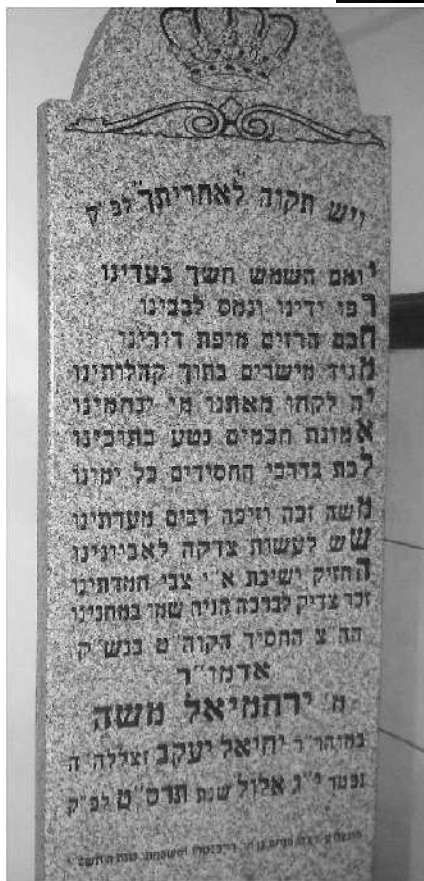 ויש תקוה לאחריתך לפ"ק
יואם השמש חשך בעדינו
רפו ידינו ונמס לבבינו
חכם הרזים מופת דורינו
מגיד מישרים בתוך קהלותינו
יה לקחו מאתנו מי ינחמינו
אמונת חכמים נטע בתוכינו
לכת בדרכי החסידים כל ימינו
משה זכה וזיכה רבים מעדתינו
שש לעשות צדקה לאביונינו
החזיק ישיבת א"י צבי חמדתינו
זכר צדיק לברכה הניח שמו במחנינו
הה"צ החסיד הקוה"ט בנש"ק
אדמו"ר
מ' ירחמיאל משה
במוהר"ר יחיאל יעקב זצללה"ה
נפטר י"ג אלול שנת תרס"ט לפ"ק